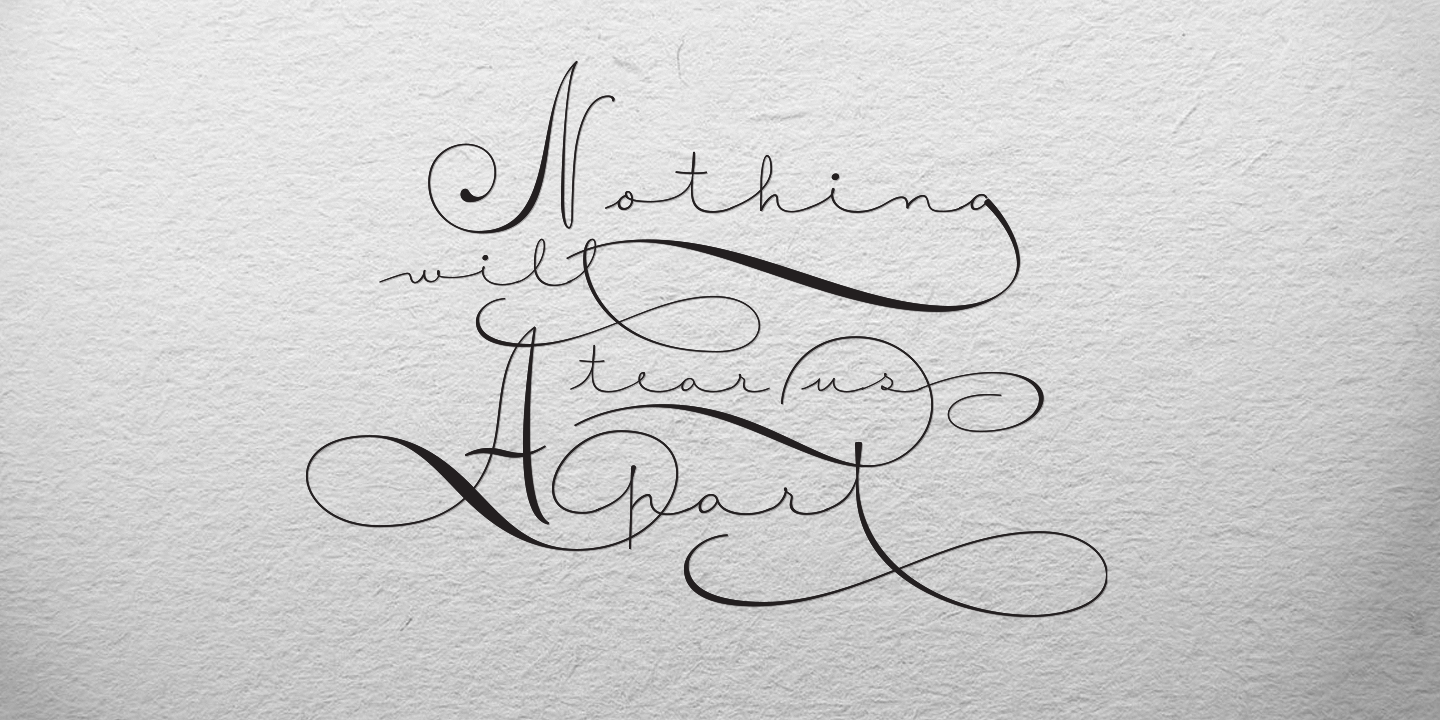 Nothing
will
tear us
Apart